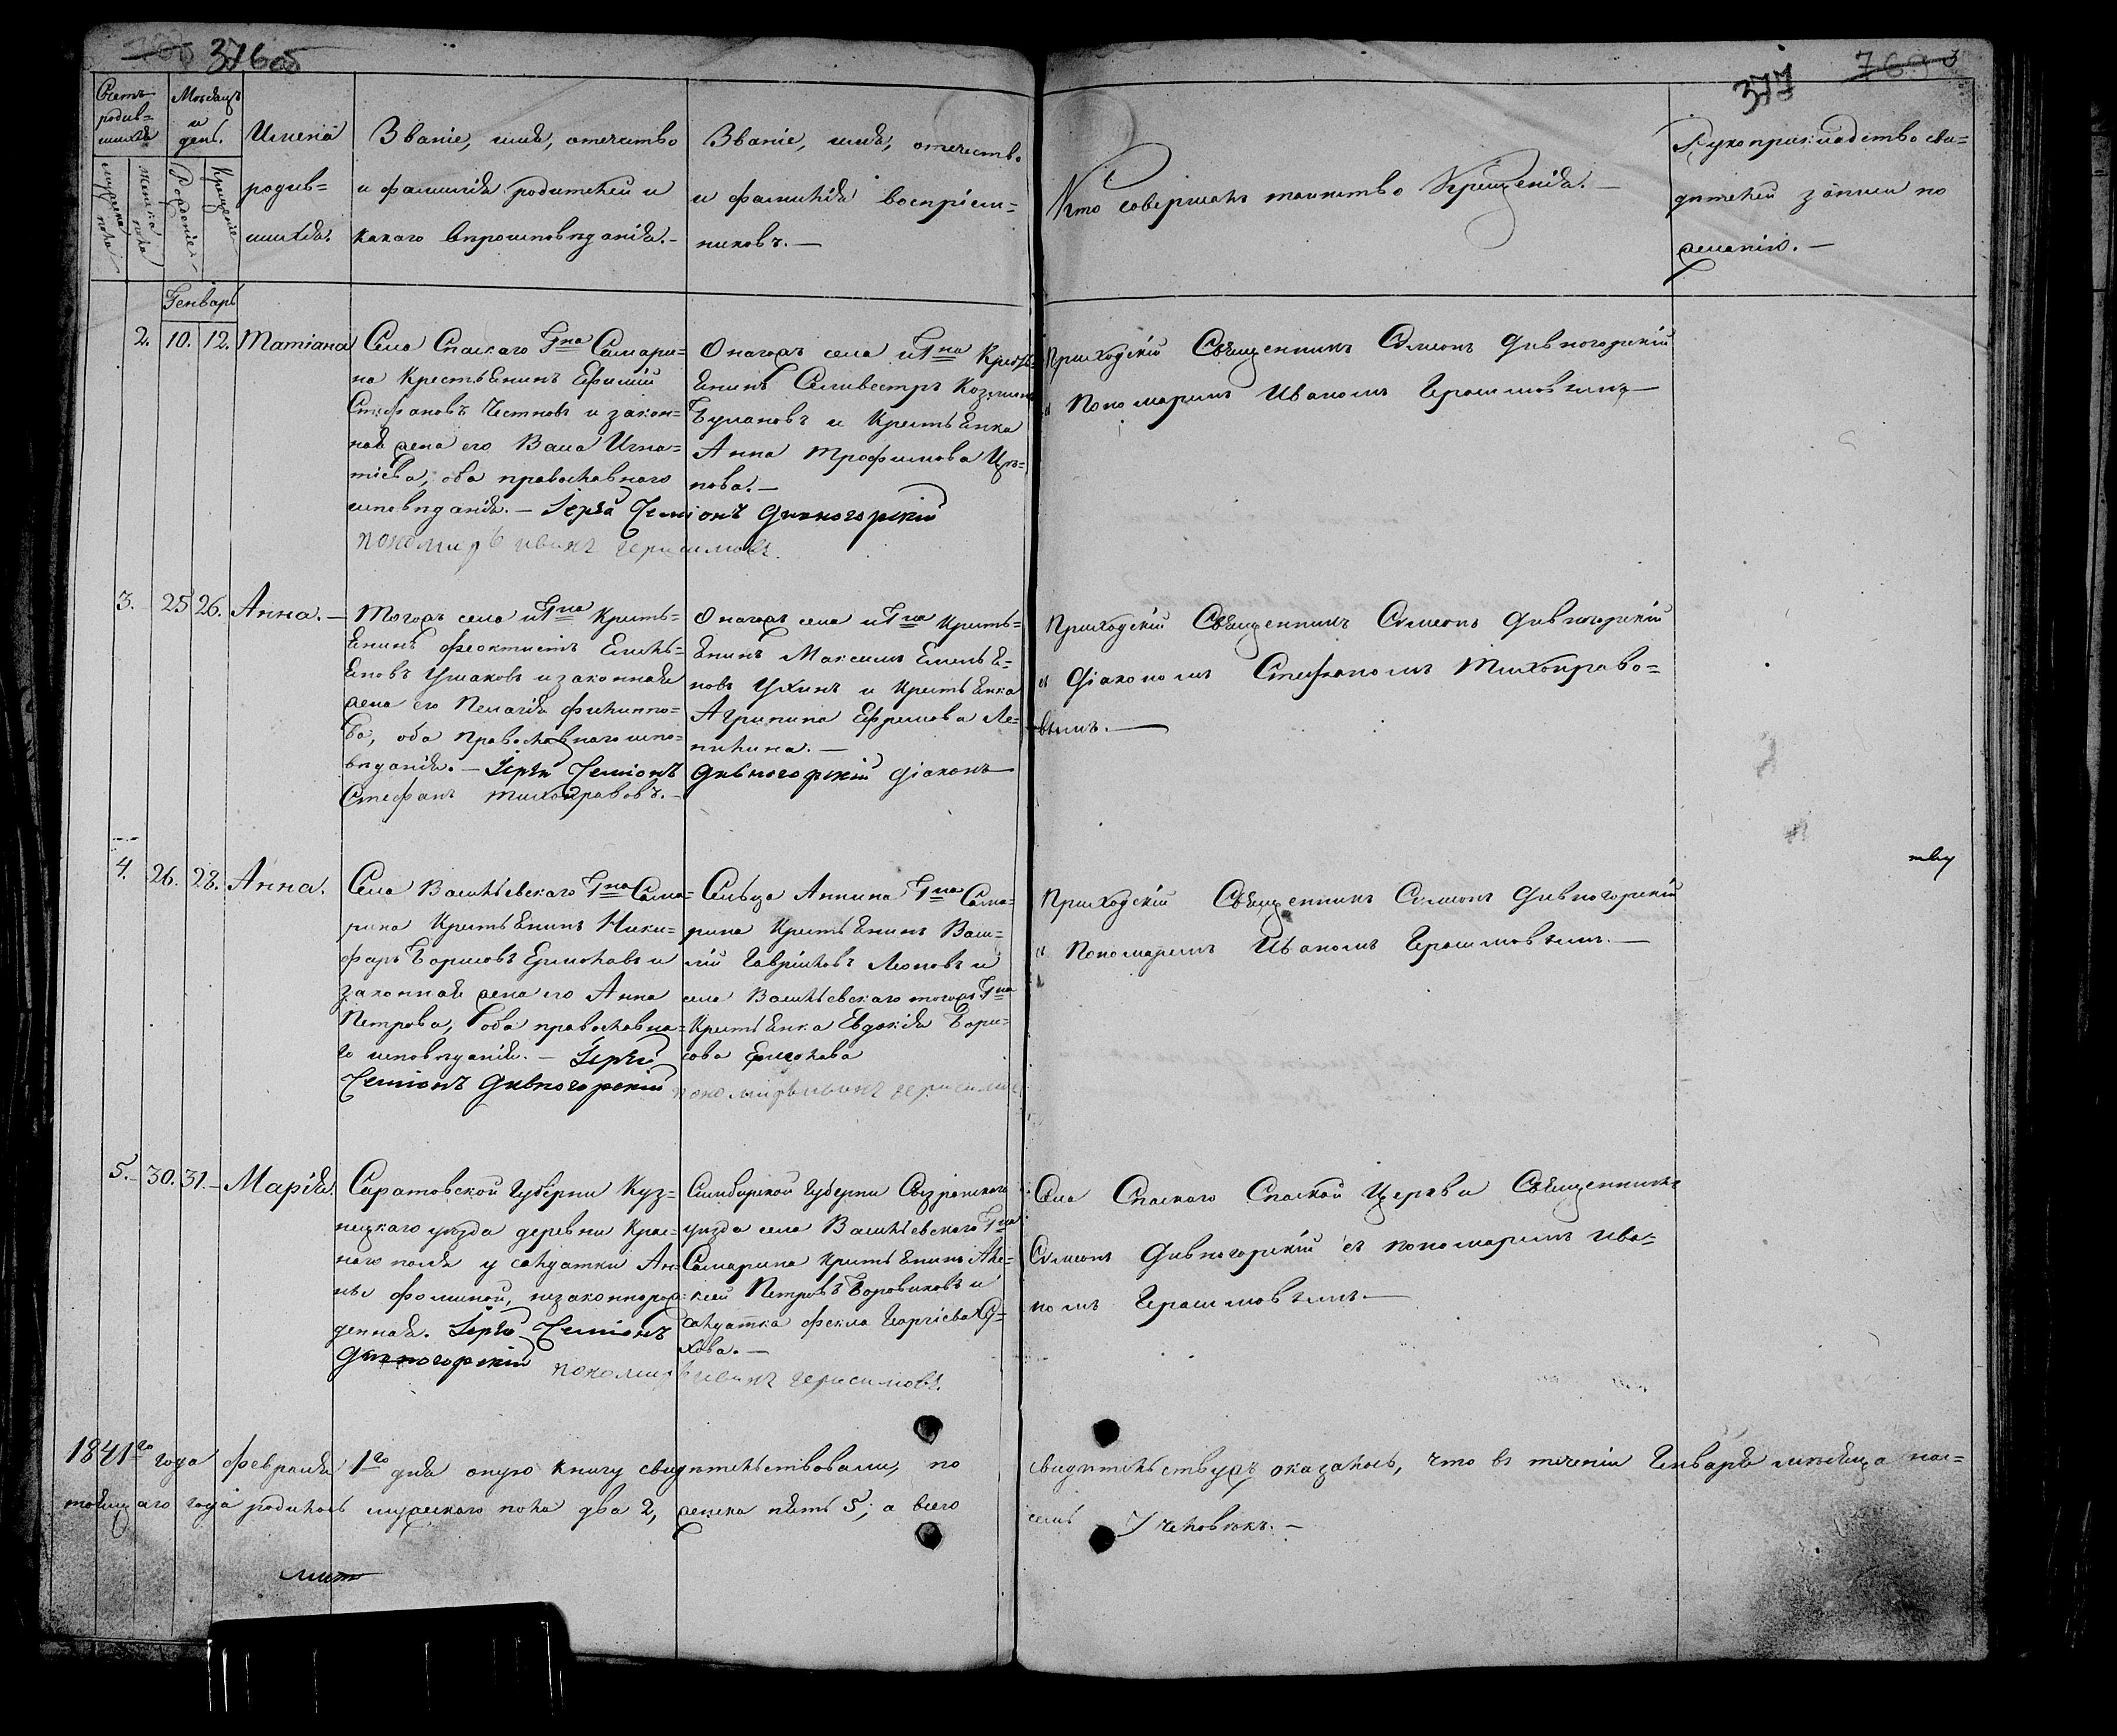 376об
377
Счетъ родив=шихся
Мѣсяцъ и день.
Имена родив=шихся.
Званіе, имя, отечество и фамилія родителей и какого вѣроисповѣданія.—
Званіе, имя, отечество и фамилія воспріем=никовъ.—
Кто совершалъ таинство Крещенія.—
Рукоприкладство сви=дѣтелей записи по желанію.—
мужеска пола
женска пола
Рожденіе
Крещеніе
Генварь
2. 10. 12. Татіана
Села Спаскаго Г-на Самари=
на Крестьянинъ Ефимій
Стефановъ Честновъ и закон=
ная жена его Васа Игна=
тіева, оба православнаго
исповѣданія.— Іерей Семіонъ Дивногорскій
пономарь иванъ герасимовъ.
Онагожъ села и Г-на Кресть=
янинъ Селивестръ Козминъ
Булановъ и Крестьянка
Анна Трофимова
нова.—
Приходскій Священникъ Симеонъ Дивногорскій
съ Пономаремъ Иваномъ Герасимовымъ—
3. 25 26. Анна.—
Тогожъ села и Г-на Кресть=
янинъ Феоктистъ Емель=
яновъ Ушаковъ и законная
жена его Пелагія Филиппо=
ва, оба Православнаго испо=
вѣданія.— Іерей Семіонъ Дивногорскій Діаконъ
Стефанъ Тихонравовъ.—
Онагожъ села и Г-на Кресть=
янинъ Максимъ Емелья=
новъ Ухинъ и Крестьянка
Агрипина Ефремова Ле=
пихина.—
Приходскій Священникъ Симеонъ Дивногорскій
съ Діакономъ Стефаномъ Тихонраво=
вымъ.—
4. 26. 28. Анна.
Села Васильевскаго Г-на Сама=
рина Крестьянинъ Ники=
форъ Борисовъ Ермолавъ и
законная жена его Анна
Петрова, оба православна=
го исповѣданія.— Іерей
Семіонъ Дивногорскій пономарь иванъ герасимов
Сельца Аннина Г-на Сама=
рина Крестьянинъ Васи=
лій Гавриловъ Леоновъ и
села Васильевскаго тогожъ Г-на
Крестьянка Евдокія Бори=
сова Ермолава
Приходскій Священникъ Симеонъ Дивногорскій
съ Пономаремъ Иваномъ Герасимовымъ.—
5. 30. 31.— Марія.
Саратовской Губерни Куз=
нецкаго уѣзда деревни Крас=
наго поля у салдатки Ан=
ны Фоминой, незаконнорож=
денная. Іерей Семіонъ
Дивногорскій пономарь иванъ герасимовъ.
Симбирской Губерни Сызранскаго
уѣзда села Васильевскаго Г-на
Самарина Крестьянинъ Але=
ксей Петровъ Боровиковъ и
салдатка Фекла Георгіева
хова.—
Села Спаскаго Спаской Церкви Священникъ
Симеонъ Дивногорскій съ пономаремъ Ива=
номъ Герасимовымъ.—
1841го года февраля 1го дня оную книгу свидѣтельствовали, по свидѣтельствужъ оказалось, что въ теченіи Генваря мѣсяца нас=
тоящаго года родилось мужескаго пола два 2, женска пять 5; а всего семь 7 человѣкъ.—